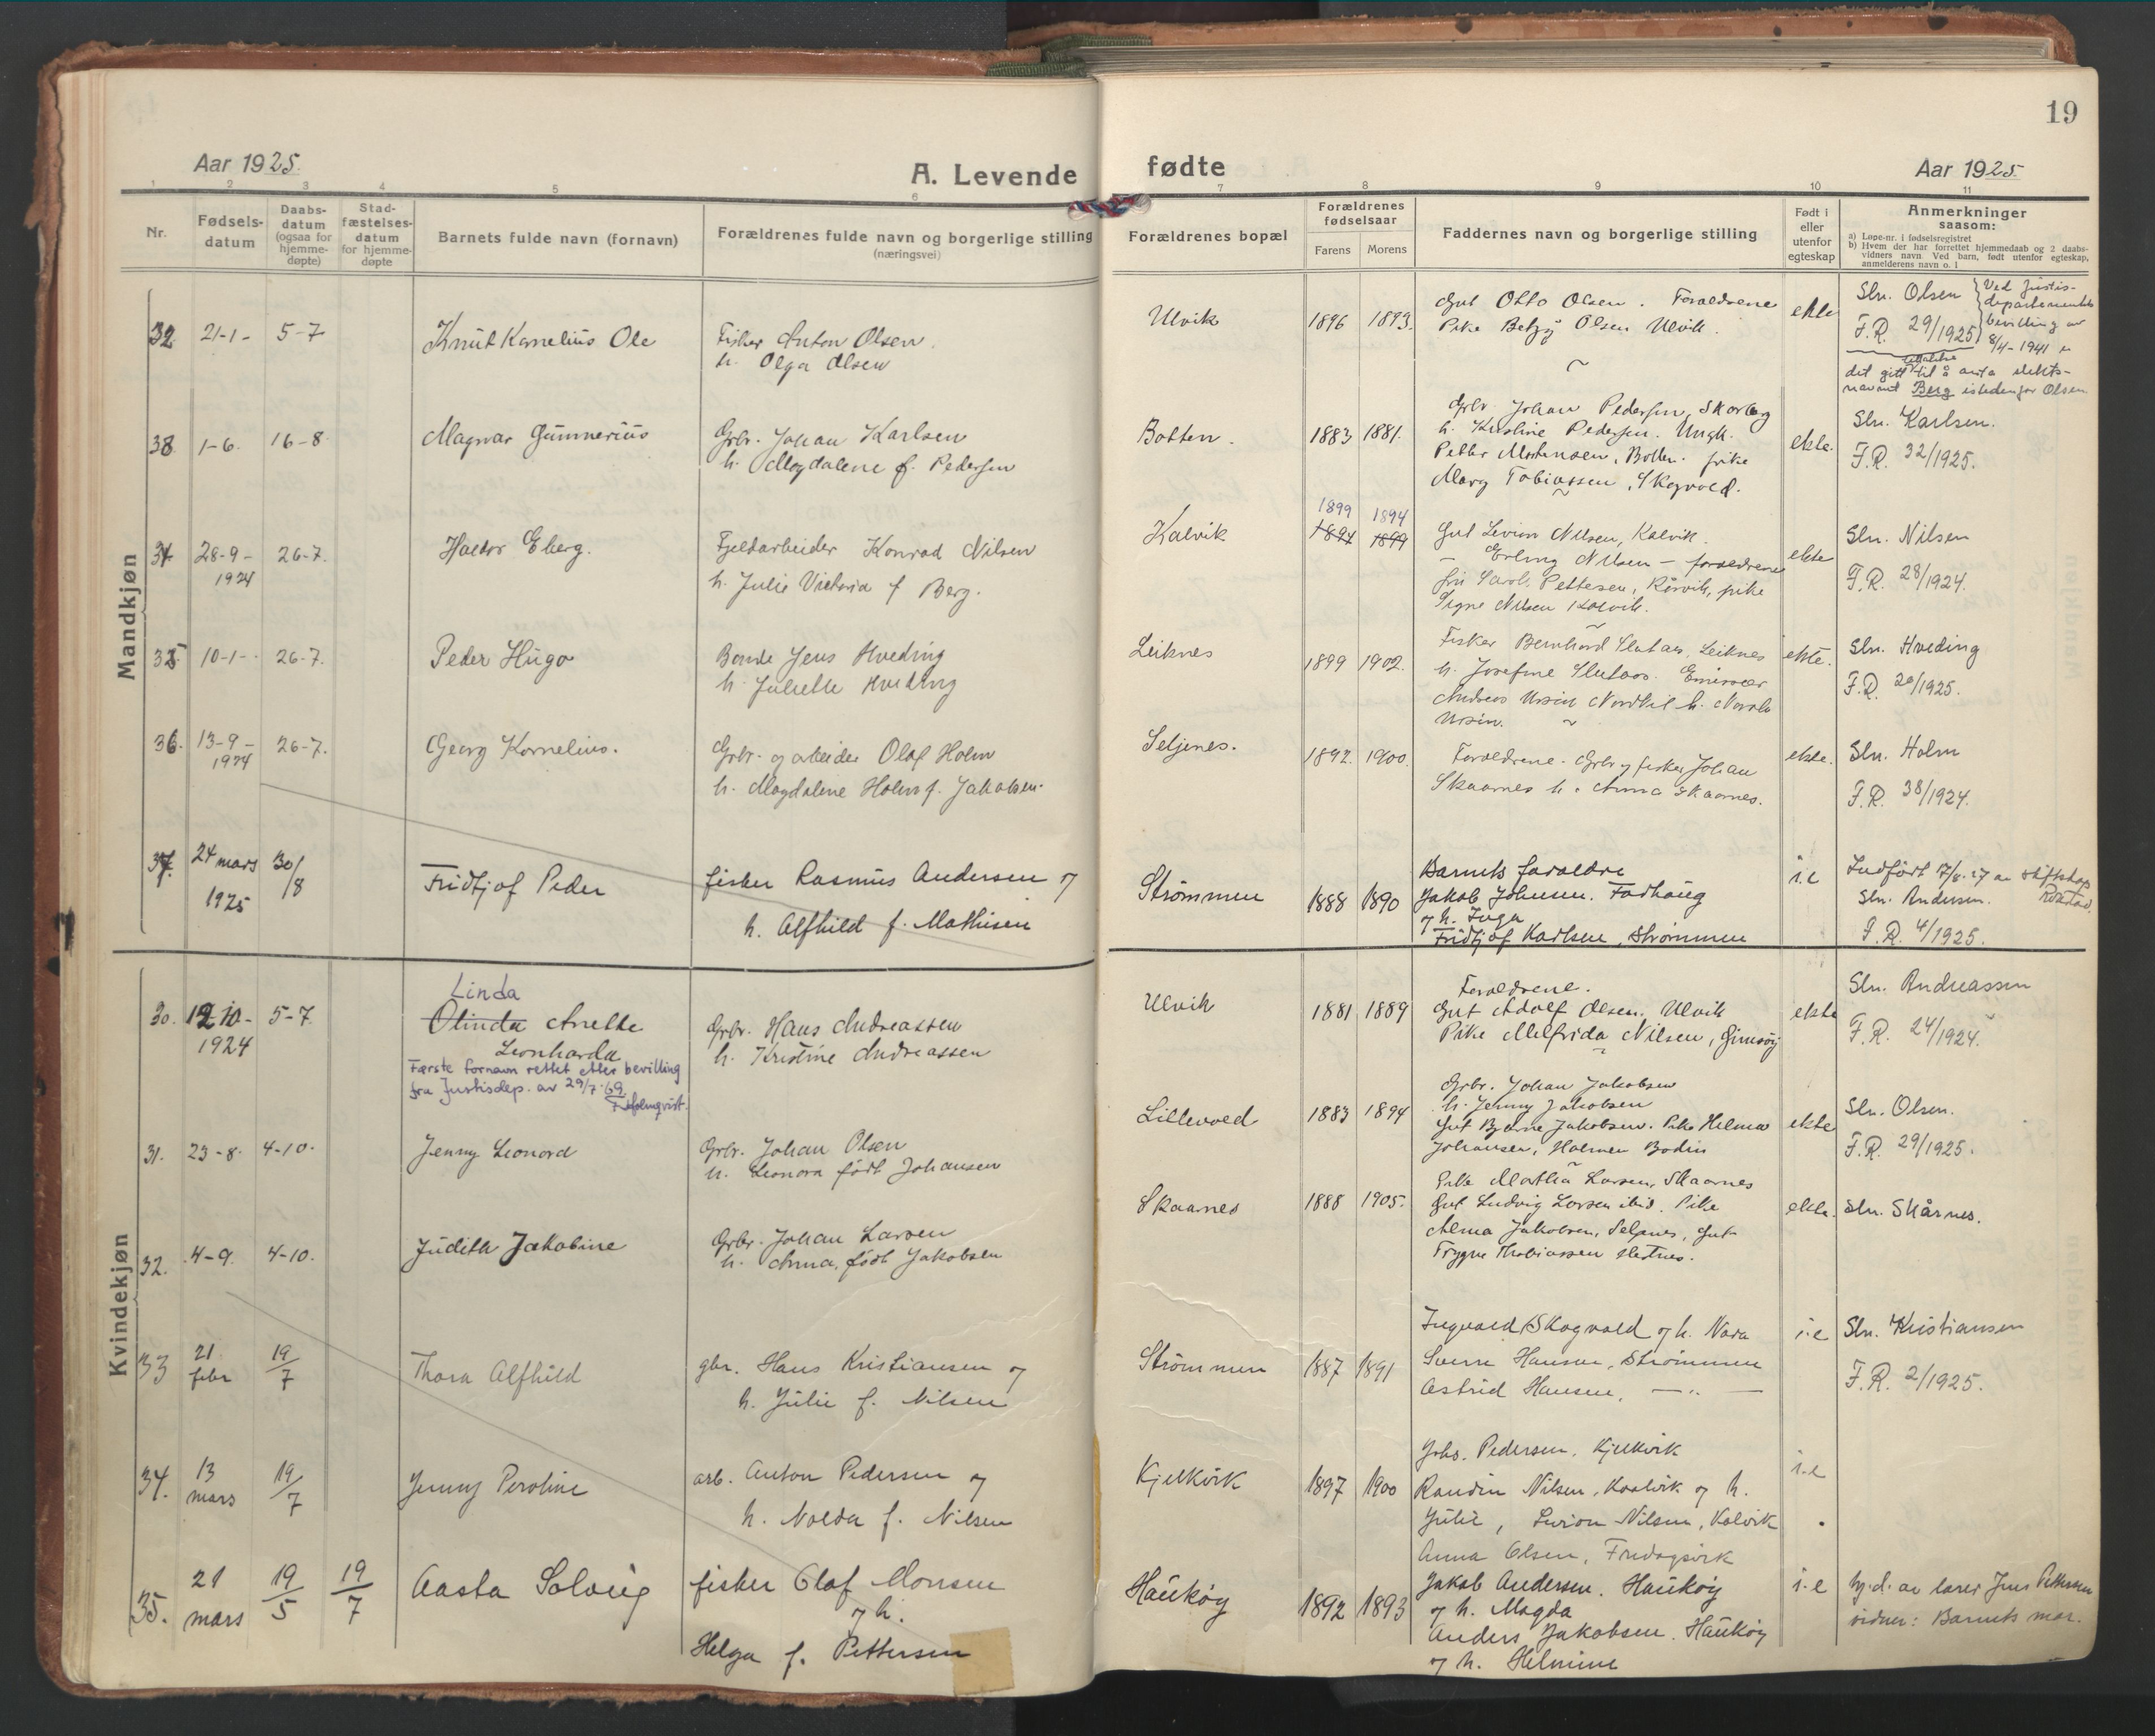 19
Aar 1925.
A. Levende
fødte
Aar 1925.
1 2 3 4 5 6 7 8 9 10 11
Nr.
Fødsels-
datum
Daabs-
datum
(ogsaa for
hjemme-
døpte)
Stad-
fæstelses-
datum
for hjemme-
døpte
Barnets fulde navn (fornavn)
Forældrenes fulde navn og borgerlige stilling
(næringsvei)
Forældrenes bopæl
Forældrenes
fødselsaar
Farens Morens
Faddernes navn og borgerlige stilling
Født i
eller
utenfor
egteskap
Anmerkninger
saasom:
a) Løpe-nr. i fødselsregistret
b) Hvem der har forrettet hjemmedaab og 2 daabs-
vidners navn. Ved barn, født utenfor egteskap,
anmelderens navn o. l
Mandkjøn
32. 21-1- 5-7 Knut Kornelius Ole
Fisker Anton Olsen
h. Olga Olsen
Ulvik 1896 1893.
Gut Otto Olsen. Foraeldrene
Pike Betzy Olsen Ulvik.
ekte
Sln. Olsen
F.R. 29/1925
Ved Justis-
departementets
bevilling av
8/4-1941 er
det gitt til å anta slekts-
navnet Berg istedenfor Olsen
33. 1-6. 16-8. Magnar Gunnerius
Grbr. Johan Karlsen
h. Magdalene f. Pedersen
Botten. 1883 1881.
Grbr. Johan Pedersen, Skorberg
h. Kristine Pedersen. Ungk.
Petter Mortensen, Botten. pike
Mary Tobiassen, Skogvold.
ekte.
Sln. Karlsen.
F.R. 32/1925.
34. 28-9- 26-7.
1924
Haldor Eberg.
Fjeldarbeider Konrad Nilsen
h. Julie Victoria f Berg.
Kalvik
1899 1894
1894 1899
Gut Levion Nilsen, Kalvik.
— Erling Nilsen — foraeldrene
fru Sarol. Pettesen, Rörvik, pike
Signe Nilsen Kalvik.
ekte
Sln. Nilsen
F.R. 28/1924.
35. 10-1- 26-7. Peder Hugo
Bonde Jens Hveding
h. Juliette Hveding
Leiknes 1899 1902.
Fisker Bernhard Slutaas, Leiknes
h. Josefine Slutaas. Emissær
Andreas Ursin Nordkil h. Norale
Ursin.
ekte.
Sln. Hveding
F.R. 20/1925.
36. 13-9- 26-7.
1924
Georg Kornelius.
Grbr. og arbeider Olaf Holm
h. Magdalene Holm f. Jakobsen.
Seljenes. 1892. 1900.
Foraeldrene. Grbr og fisker Johan
Skaarnes h. Anna Skaarnes.
ekte.
Sln. Holm
F.R. 38/1924.
37. 24 mars 30/8
1925
Fridtjof Peder
fisker Rasmus Andersen og
h. Alfhild f. Mathisen
Strömmen 1888 1890
Barnets foraeldre
Jakob Johnsen. Forhaug
og h. Inga
Fridtjof Karlsen, Strömmen
i.e
Indfört 7/8.27 av stiftskap
Sln. Andersen. Rokstad.
F.R. 4/1925.
Kvindekjøn
30. 12-10- 5-7.
1924
Linda
Olinda Anette
Leonharda
Første fornavn rettet etter bevilling
fra Justisdep. av 29/7-69.
Grbr. Hans Andreassen
h. Kristine Andreassen
Ulvik 1881 1889
Foraeldrene.
Gut Adolf Olsen. Ulvik
Pike Melfrida Nilsen, Gimsöy
ekte
Sln. Andreassen
F.R. 24/1924.
31. 23-8. 4-10. Jenny Leonord
Grbr. Johan Olsen
h. Leonora født Johansen
Lillevold 1883 1894
Grbr. Johan Jakobsen
h. Jenny Jakobsen
Gut Bjarne Jakobsen. Pike Helma
Johansen, Holmen Bodin
ekte
Sln. Olsen.
F.R. 29/1925.
32. 4-9. 4-10. Judith Jakobine
Grbr. Johan Larsen
h. Anna, født Jakobsen
Skaarnes 1888 1905.
Pike Martha Larsen, Skaarnes
Gut Ludvig Larsen ibid. Pike
Alma Jakobsen, Selpnes, Gut
Trygve Thobiassen
ekte.
Sln. Skårnes.
33 21 febr 19/7 Thora Alfhild
gbr. Hans Kristiansen og
h. Julie f. Nilsen
Strömmen 1887 1891
Ingvald Skogvold og h. Nora
Sverre Hansen, Strömmen
Astrid Hansen, — „ —
i.e
Sln. Kristiansen
F.R. 2/1925.
34. 13 mars 19/7 Jenny Peroline
arb. Anton Pedersen og
h. Nolda f. Nilsen
Kjelkvik 1897 1900
Johs. Pedersen, Kjelkvik
Randin Nilsen, Kaalvik og h.
Julie, Levion Nilsen, Kalvik
Anna Olsen, Fredagsvik
i.e
35. 21 mars 19/5 19/7 Aasta Solveig
fisker Olaf Monsen
og h.
Helga f. Pettersen
Haukøy 1892 1893
Jakob Andersen. Haukøy
og h. Magda
Anders Jakobsen. Haukøy
og h. Helmine
i.e
hj.d. av lærer Jens Pettersen
vidner: Barnets mor.